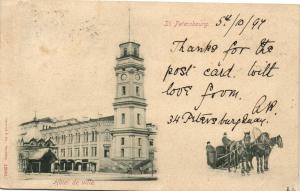 St. Petersbourg.
5th/10/97
Thanks for the
post card. with
love from.
34 Petersburgquay.
Hôtel de ville.